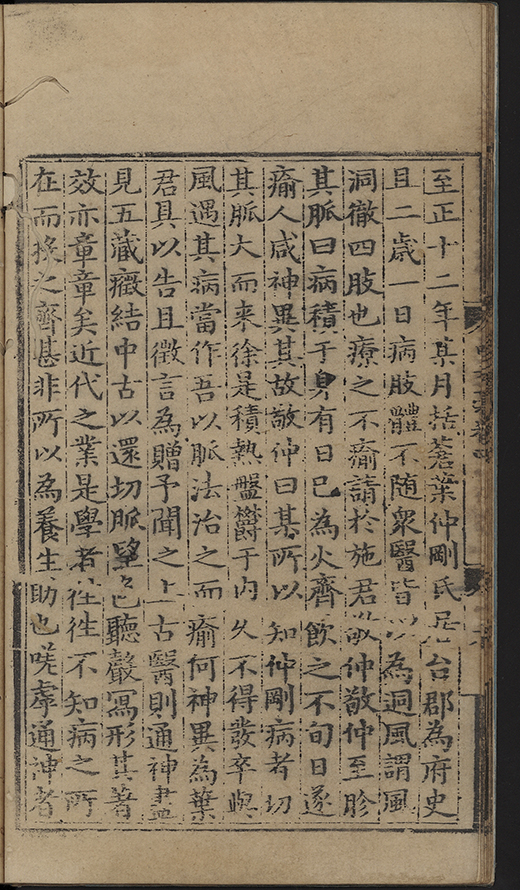 至正十二年某月括蒼葉仲剛氏居台郡為府史
且二歲一日病肢體不随衆醫皆以為迵風謂風
洞徹四肢也療之不瘉請於施君敬仲敬仲至診
其脈曰病積于身有日巳為火齊飲之不旬日遂
瘉人咸神異其故敬仲曰某所以知仲剛病者切
其脈大而来徐是積熱盤欝于内久不得發卒與
風遇其病當作吾以脈法治之而瘉何神異為葉
君具以告且徵言為贈予聞之上古醫則通神盡
見五藏癥結中古以還切脈望色聽聲寫形其著
效亦章章矣近代之業是學者往往不知病之所
在而掾之齊甚非所以為養生助也嗟虖通神者